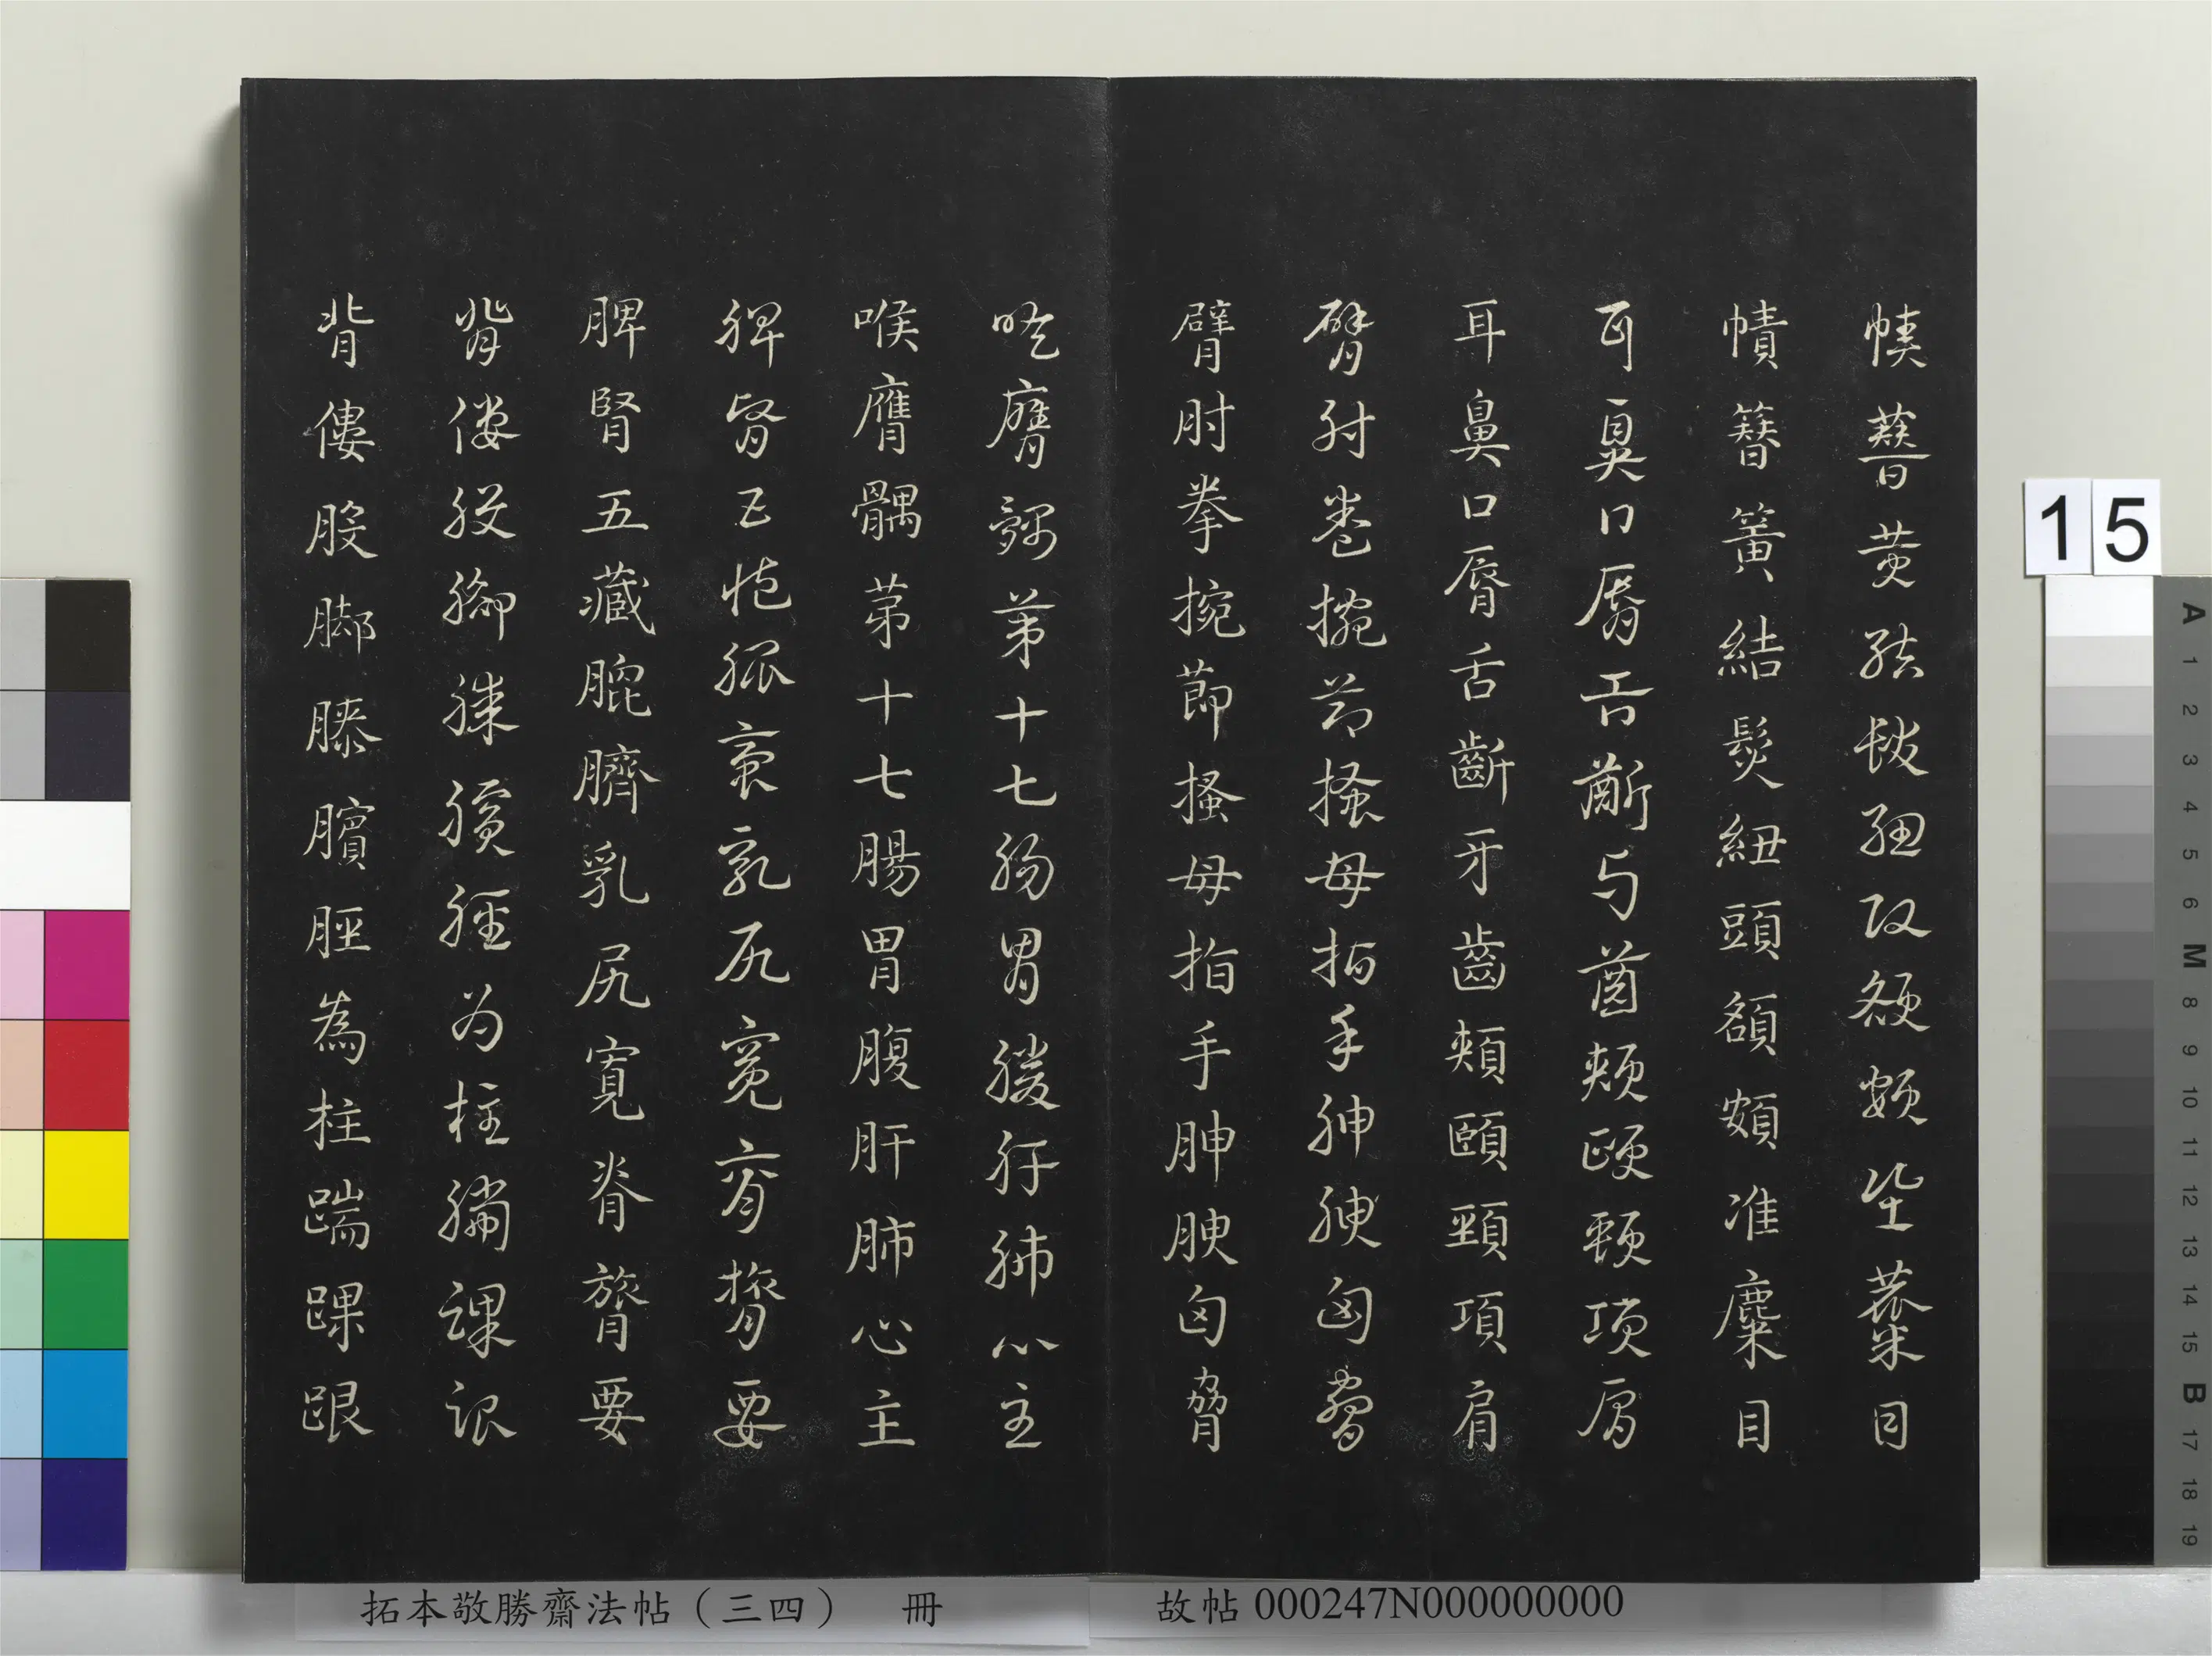 幘簪簧結髮紐頭額頞准麋目
幘簪簧結髮紐頭額頞准麋目
耳鼻口脣舌齗牙齒頰頤頸項肩
耳鼻口脣舌齗牙齒頰頤頸項肩
臂肘拳捥莭搔母指手胂腴匈脅
臂肘拳捥莭搔母指手胂腴匈脅
喉膺髃苐十七腸胃腹肝肺心主
喉膺髃苐十七腸胃腹肝肺心主
脾腎五藏膍臍乳尻寬脊膂要
脾腎五藏膍臍乳尻寬脊膂要
背僂股腳膝臏脛为柱踹踝跟
背僂股腳膝臏脛為柱踹踝跟
拓本敬勝齋法帖（三四） 冊
故帖 000247N000000000
15
A 1 2 3 4 5 6 M 8 9 10 11 12 13 14 15 B 17 18 19